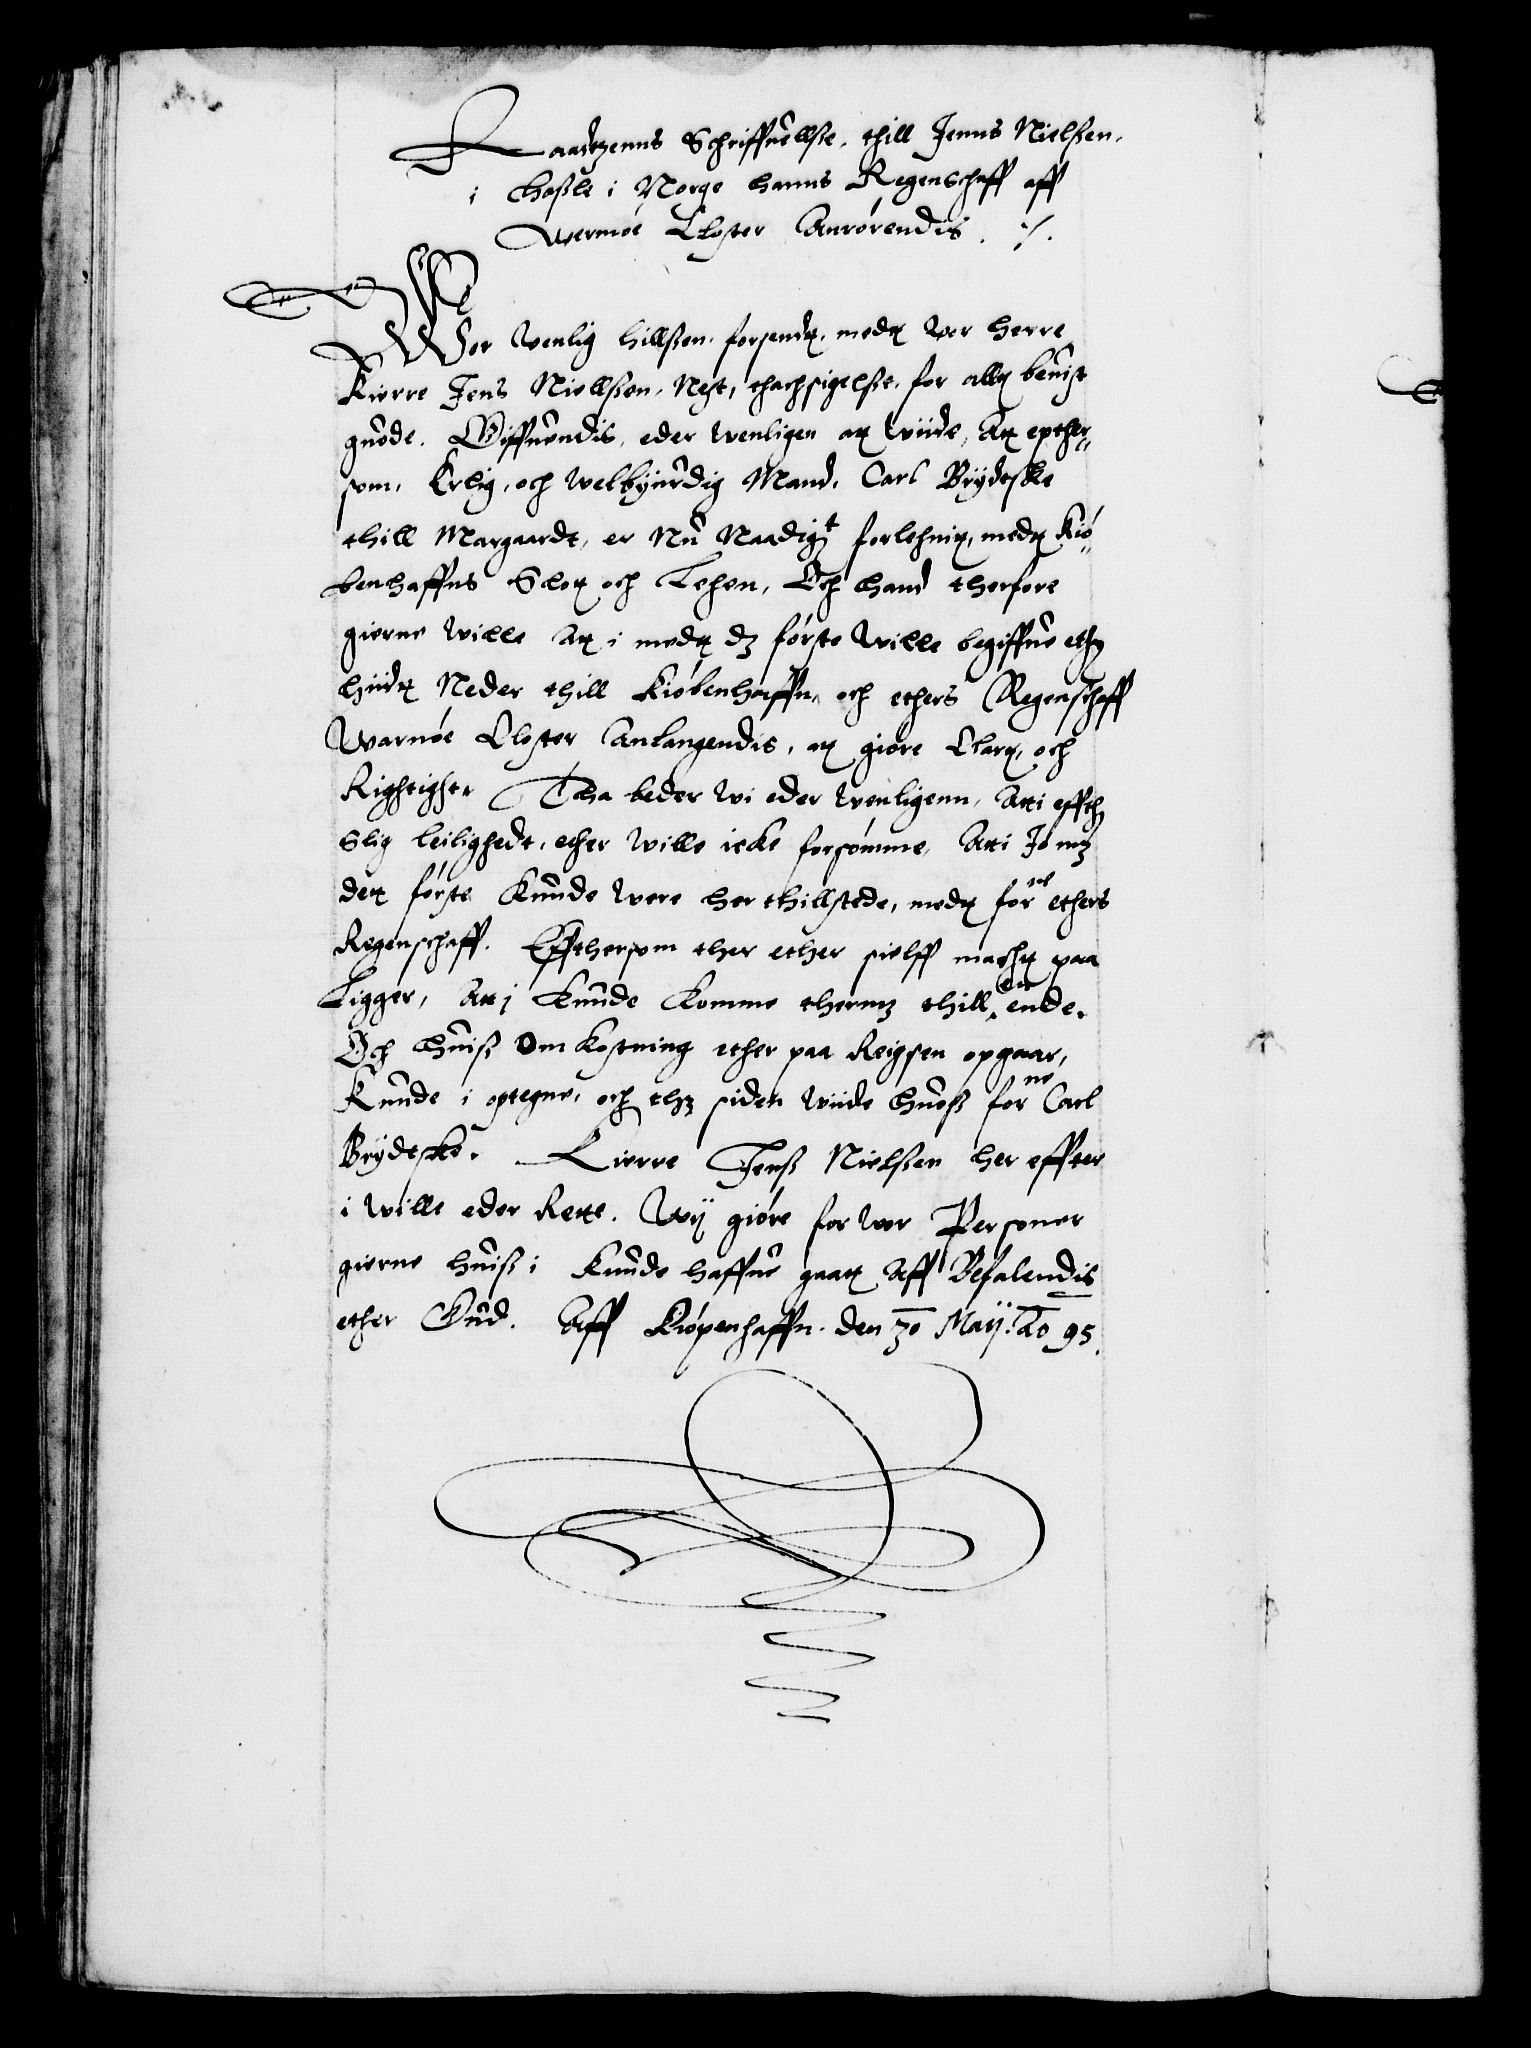 Raadtzenns Schriffuellsse, thill Jenns Nielssen,
i Hassle i Norge hanns Regenschaff aff
Wernøe Closter Anrørendis ./.
Wor Wenlig hillssen, forsendt, medt wor Herre
Kierre Jens Niellssen, Nest, thachsigelsse, for allt beuist
guode. Giffuendis, eder wenligen at wiide, At epther-
som, Erlig, och Welbyurdig Mand, Carl Brydtske
thill Margaardt, er Nu Naadigt forlehnit, medt Kiø-
benhaffns Slot och Lehen, Och hand therfore
gierne wille At i medt dz første Wille begiffue ether
hiidt Neder thill Kiøbenhaffn, och ethers Regenschaff
Warnøe Closter Anlangendis, at giøre Clart, och
Rightight. Tha beder wi eder wenligenn, Atti effther
Slig leilighedt, ether wille icke forsømme, Atti Jo mz
det første kunde were her thillstede, medt forne ethers
Regenschaff. Effthersom ther ether sielff macht paa
Ligger, Att j kunde komme thermz thill en ende.
Och huiss Omkostning ether paa Reigsen opgaar,
Kunde i optegne, och thz siden wiide huoss forne Carl
Brydtske. Kierre Jenss Nielssen her effter
i wille eder Rette. Wij giøre for wor Personer
gierne huiss i kunde haffue gaat Aff Befalendis
ether Gud. Aff Kiøpenhaffn. den 30 Maij. Ao 95.